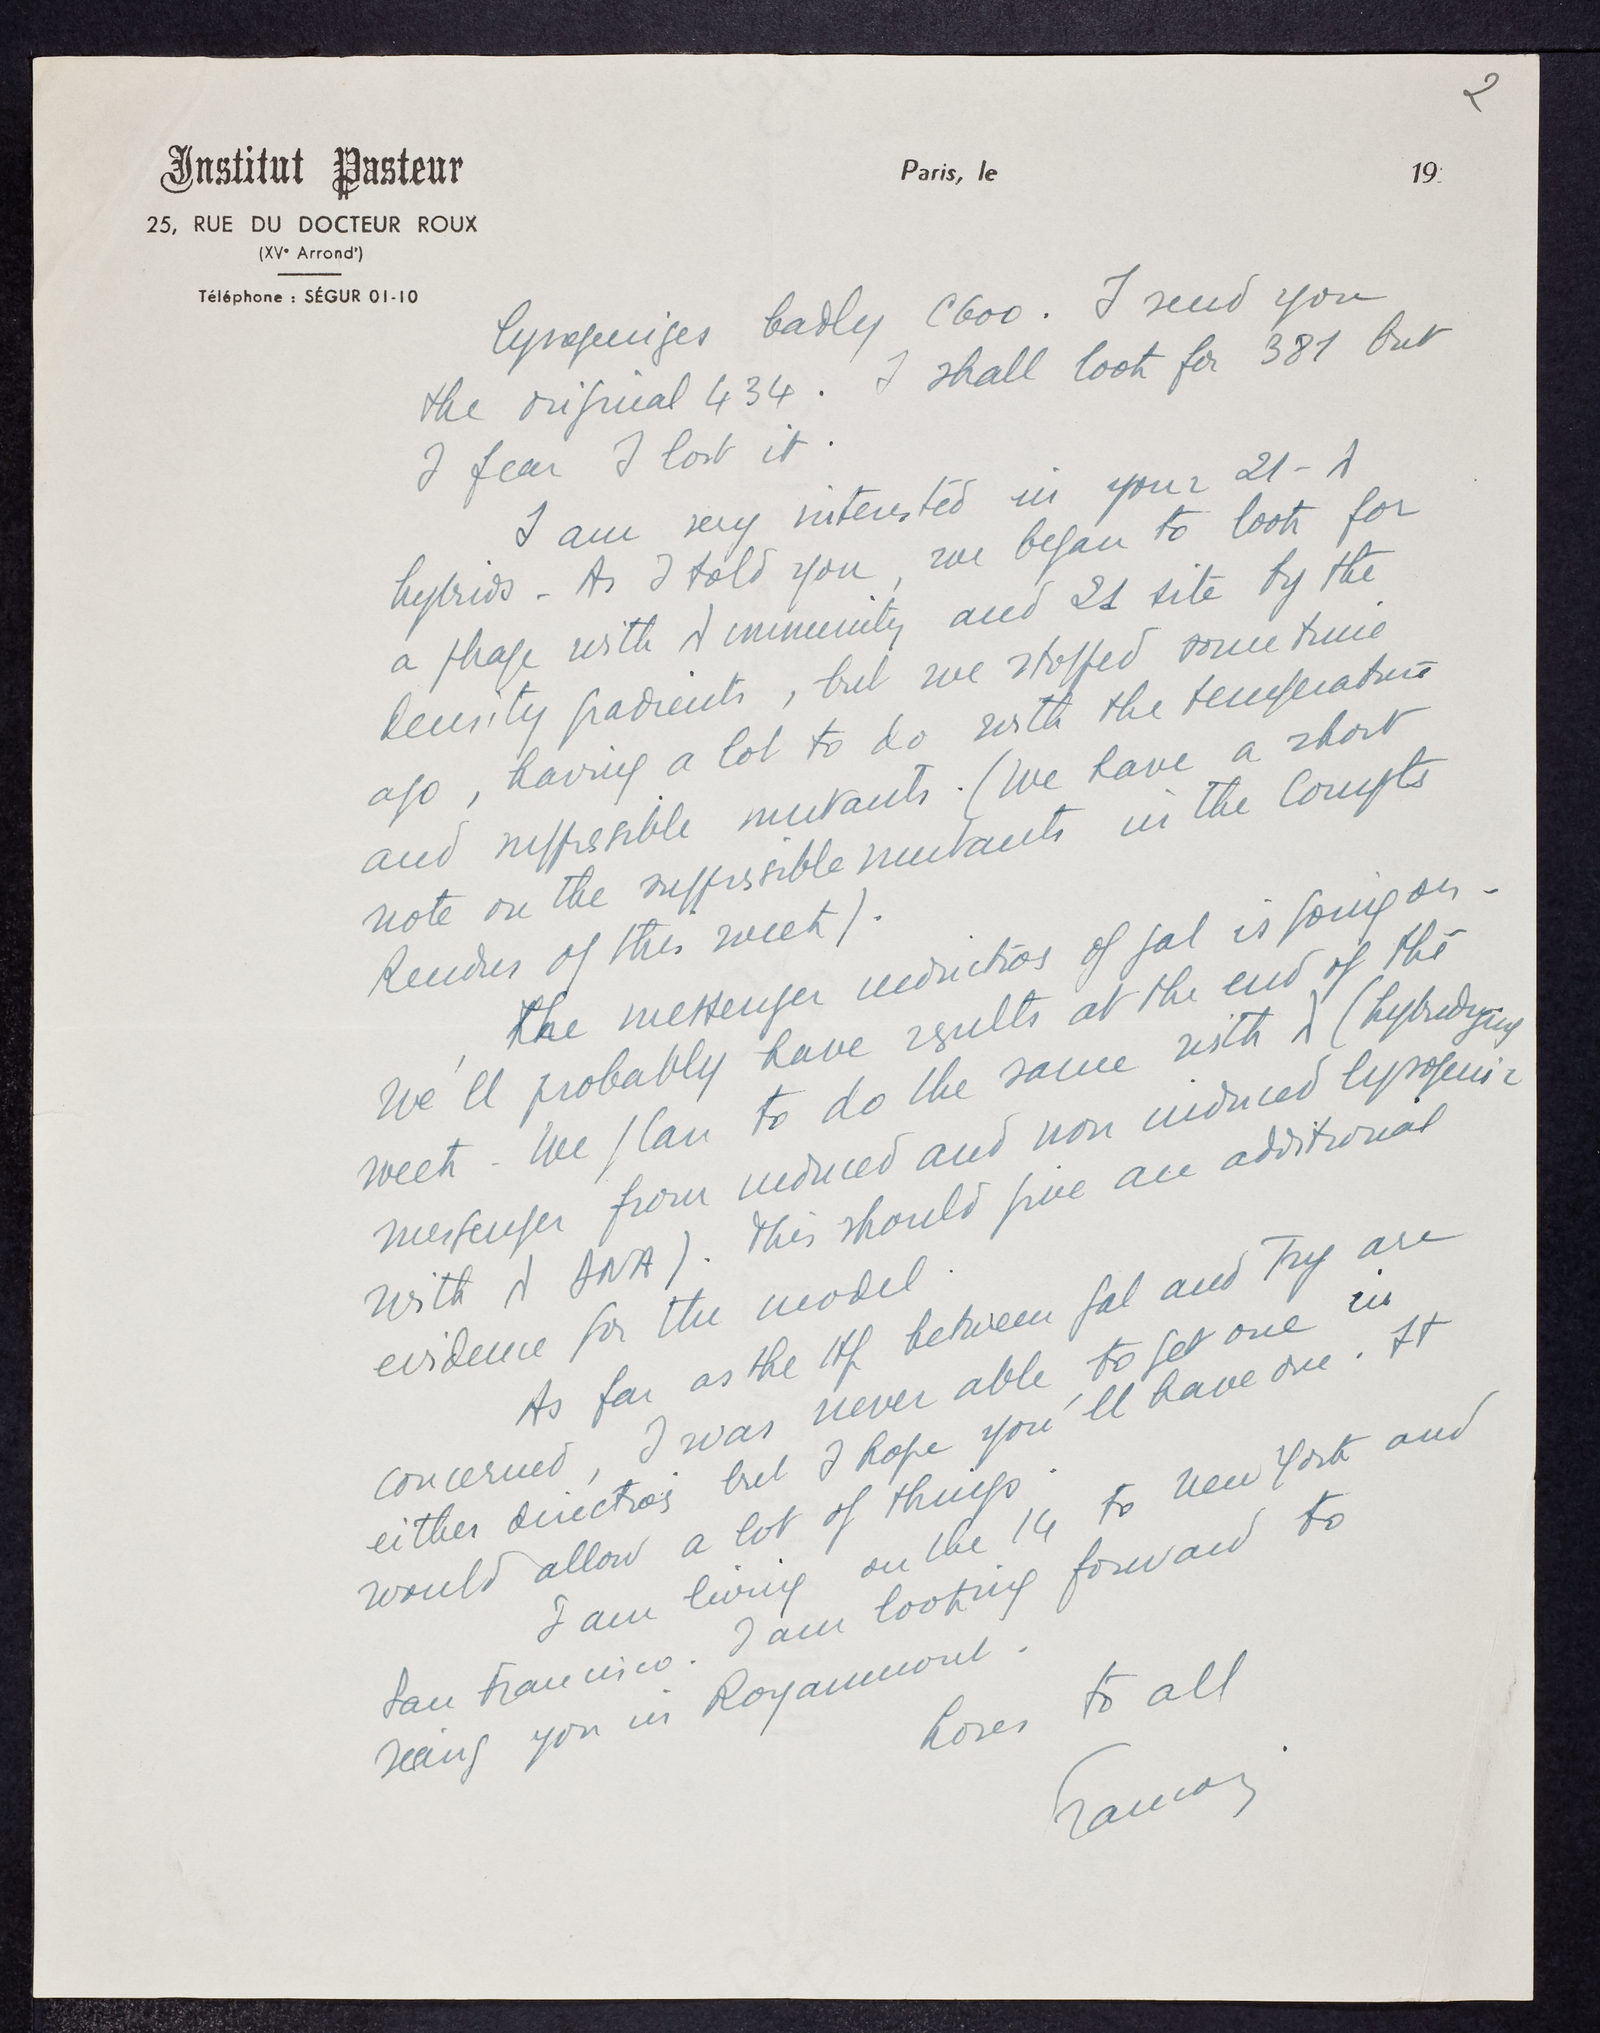 2
Institut Pasteur
Paris, le 19
25, RUE DU DOCTEUR ROUX
(XVe Arrondt)
Téléphone : SÉGUR 01-10
lysogenizes badly C600. I send you
the original 434. I shall look for 381 but
I fear I lost it.
I am very interested in your 21-λ
hybrids - As I told you, we began to look for
a phage with λ immunity and 21 site by the
density gradients, but we stopped some time
ago, having a lot to do with the temperature
and suppressible mutants. (We have a short
note on the suppressible mutants in the Compts
Rendus of this week).
The messenger induction of gal is going on -
We'll probably have results at the end of the
week - We plan to do the same with λ (hybridizing
messenger from induced and non induced lysogenic
with λ DNA). This should give an additional
evidence for the model.
As far as the Hf between gal and Try are
concerned, I was never able to get one in
either direction but I hope you'll have one. It
would allow a lot of things.
I am living on the 14 to New York and
San Francisco. I am looking forward to
seeing you in Royaumont.
Loves to all
François